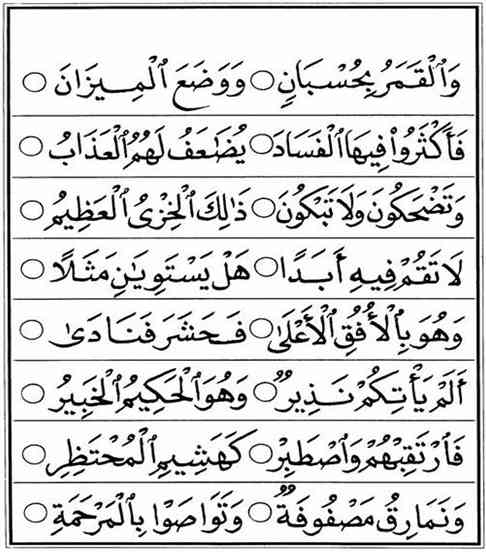 وَٱلْقَمَرُ بِحُسْبَانٍ ○ وَوَضَعَ ٱلْمِيزَانَ ○
فَأَكْثَرُوا۟ فِيهَا ٱلْفَسَادَ ○ يُضَٰعَفُ لَهُمُ ٱلْعَذَابُ ○
وَتَضْحَكُونَ وَلَا تَبْكُونَ ○ ذَٰلِكَ ٱلْخِزْىُ ٱلْعَظِيمُ ○
لَا تَقُمْ فِيهِ أَبَدًا ○ هَلْ يَسْتَوِيَانِ مَثَلًا ○
وَهُوَ بِٱلْأُفُقِ ٱلْأَعْلَىٰ ○ فَحَشَرَ فَنَادَىٰ ○
أَلَمْ يَأْتِكُمْ نَذِيرٌ ○ وَهُوَ ٱلْحَكِيمُ ٱلْخَبِيرُ ○
فَٱرْتَقِبْهُمْ وَٱصْطَبِرْ ○ كَهَشِيمِ ٱلْمُحْتَظِرِ ○
وَنَمَارِقُ مَصْفُوفَةٌ ○ وَتَوَاصَوْا۟ بِٱلْمَرْحَمَةِ ○